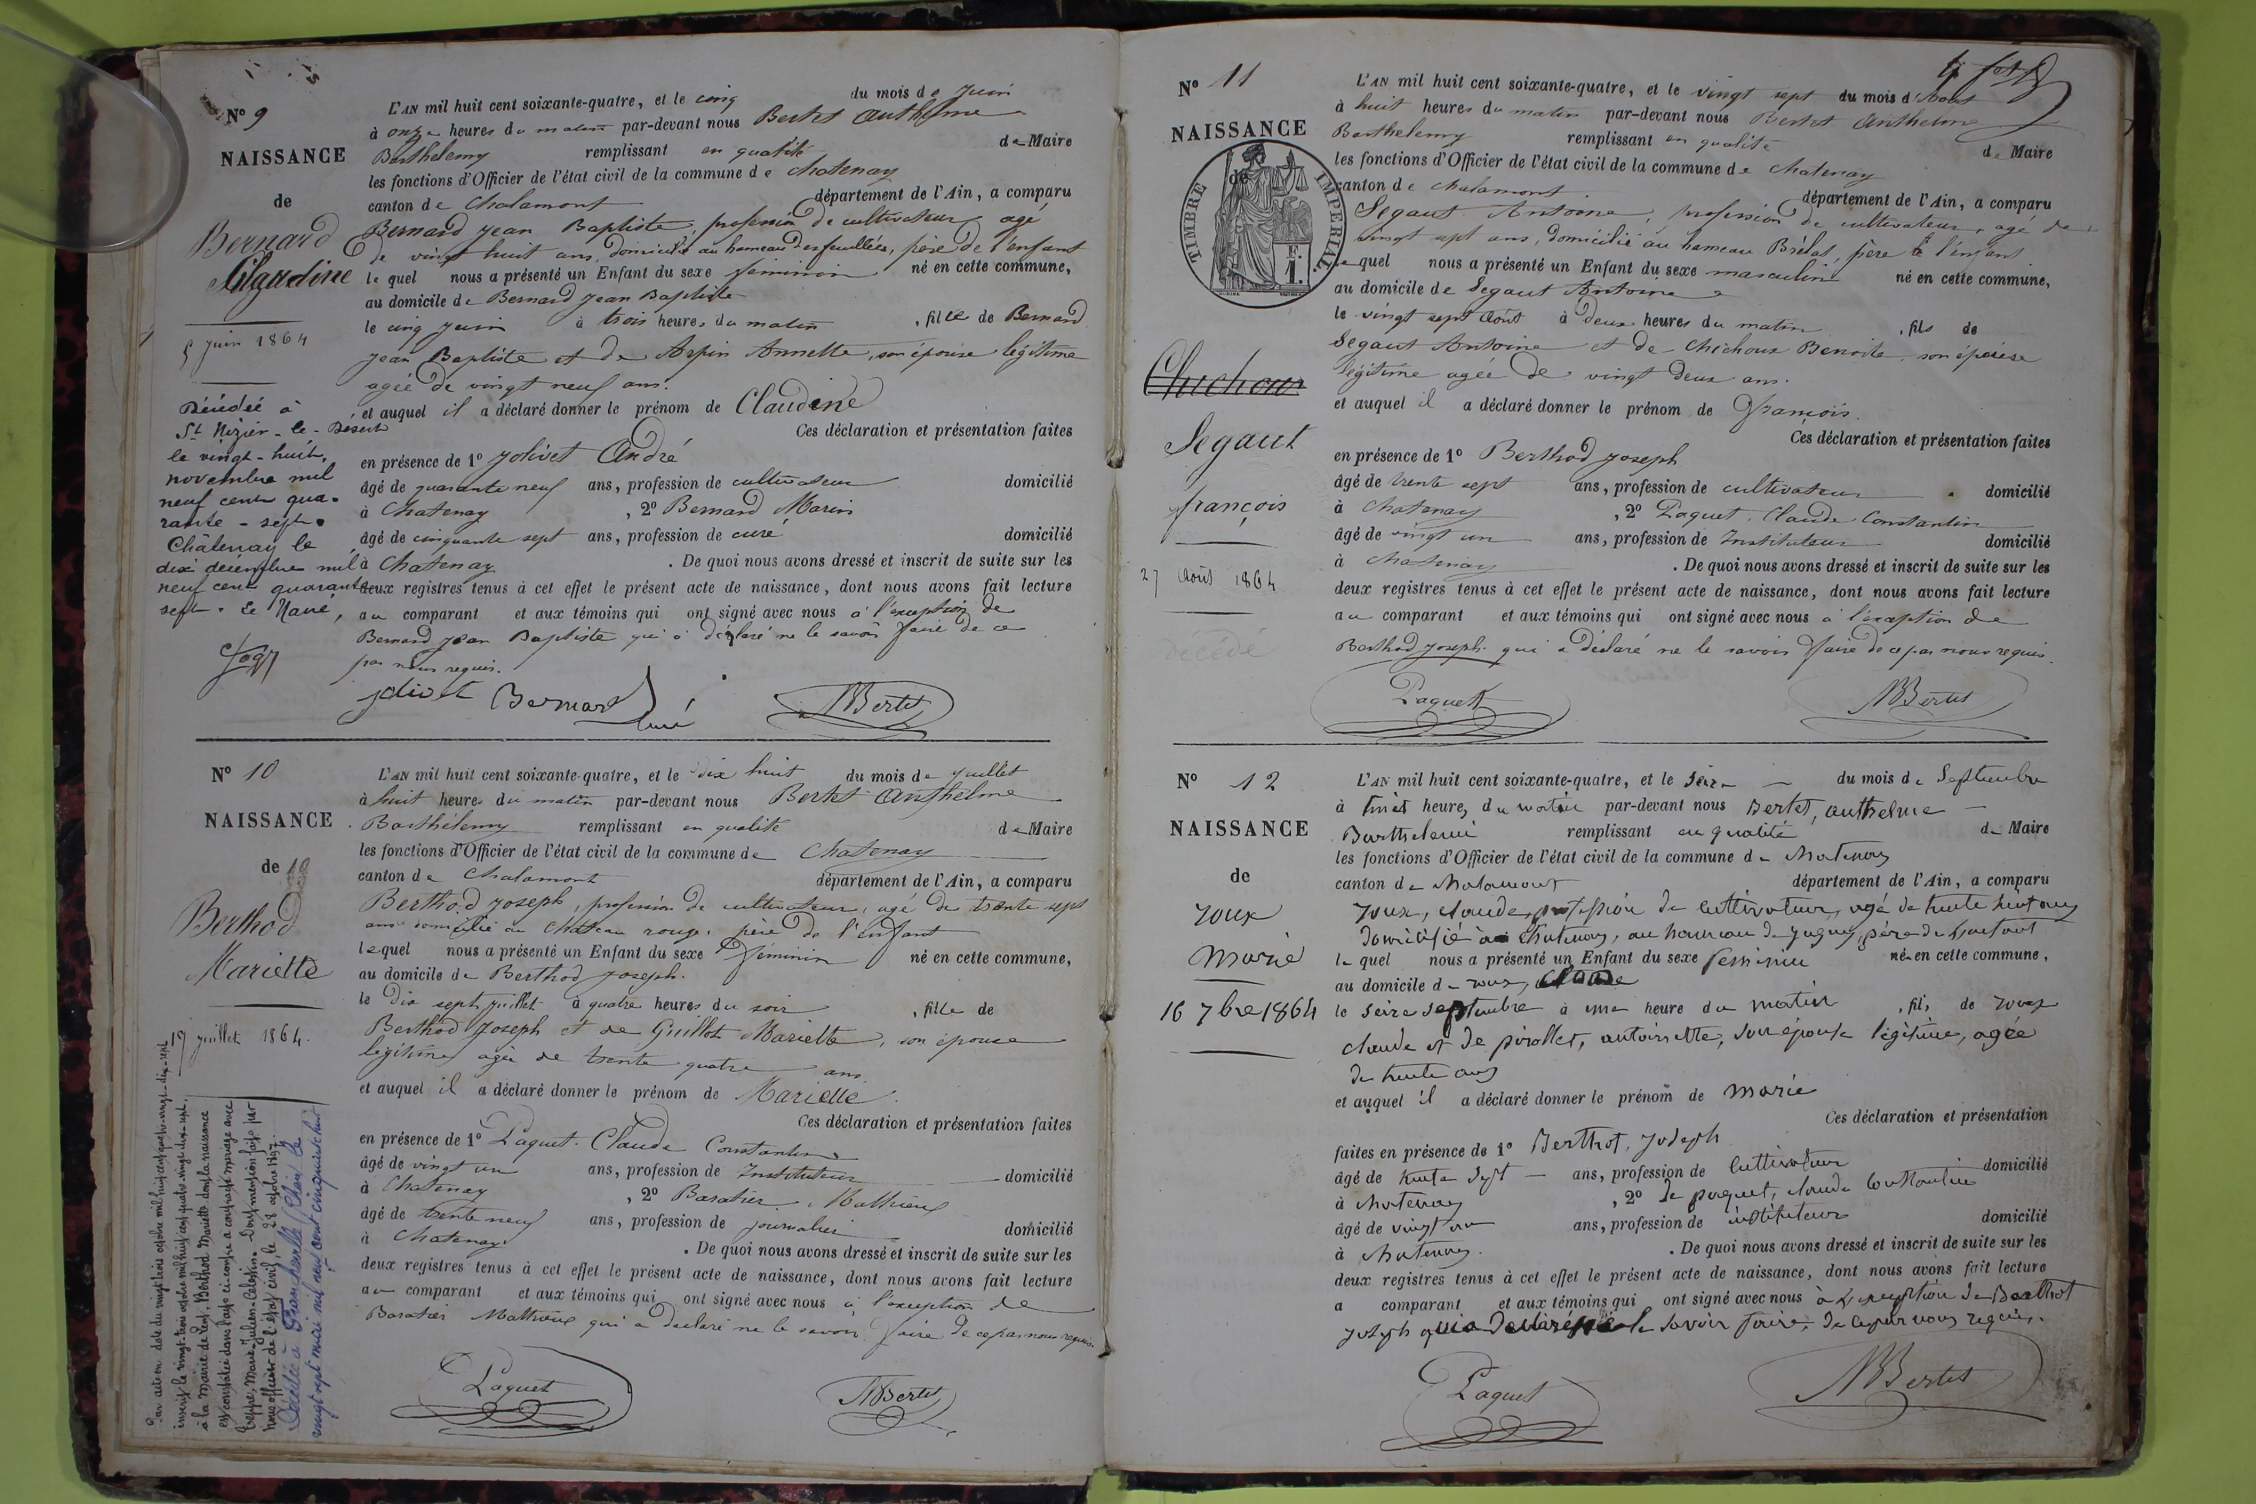 Nº 9
NAISSANCE
de
Bernard
Claudine
5 juin 1864
Décédée à
St Nizier-le-Désert
le vingt-huit
novembre mil
neuf cent qua-
rante-sept.
Châtenay le
dix décembre mil
neuf cent quarante
sept. Le Maire,
L'AN mil huit cent soixante-quatre, et le cinq du mois de juin
à onze heures du matin par-devant nous Bertet Anthelme
Barthelemy remplissant en qualité de Maire
les fonctions d'Officier de l'état civil de la commune de Chatenay
canton de Chalamont département de l'Ain, a comparu
Bernard Jean Baptiste, profession de cultivateur agé
de vingt huit ans, domicilié au hameau des feuillées, père de l'enfant
le quel nous a présenté un Enfant du sexe féminin né en cette commune,
au domicile de Bernard Jean Baptiste
le cinq juin à trois heures du matin, fille de Bernard
Jean Baptiste et de Arpin Annette, son épouse légitime
agée de vingt neuf ans.
et auquel il a déclaré donner le prénom de Claudine
Ces déclaration et présentation faites
en présence de 1º Jolivet André
âgé de quarante neuf ans, profession de cultivateur domicilié
à Chatenay, 2º Bernard Marin
âgé de cinquante sept ans, profession de curé domicilié
à Chatenay. De quoi nous avons dressé et inscrit de suite sur les
deux registres tenus à cet effet le présent acte de naissance, dont nous avons fait lecture
au comparant et aux témoins qui ont signé avec nous à l'exception de
Bernard Jean Baptiste qui a déclaré ne le savoir faire de ce
par nous requis.
Jolivet Bernard curé ABertet
Nº 10
NAISSANCE
de
Berthod
Mariette
17 juillet 1864.
Par acte en date du vingt trois octobre mil huit cent quatre-vingt-dix-sept
inscrit le vingt-trois octobre mil huit cent quatre-vingt-dix-sept,
à la Mairie de Berthod Mariette dont la naissance
est constatée dans l'acte ci-contre a contracté mariage avec
Marie-Julien-Célestin. Dont mention faite par
nous officier de l'état civil, le 28 octobre 1897.
Décédée à (Ain) le
vingt sept mai mil neuf cent cinquante huit
L'AN mil huit cent soixante-quatre, et le dix huit du mois de juillet
à huit heures du matin par-devant nous Bertet Anthelme
Barthélemy remplissant en qualité de Maire
les fonctions d'Officier de l'état civil de la commune de Chatenay
canton de Chalamont département de l'Ain, a comparu
Berthod Joseph, profession de cultivateur, agé de trente sept
ans domicilié au Château rouge, père de l'enfant
lequel nous a présenté un Enfant du sexe féminin né en cette commune,
au domicile de Berthod Joseph.
le dix sept juillet à quatre heures du soir, fille de
Berthod Joseph et de Guillot Mariette, son épouse
légitime, agée de trente quatre ans.
et auquel il a déclaré donner le prénom de Mariette.
Ces déclaration et présentation faites
en présence de 1º Paquet. Claude Constantin
âgé de vingt un ans, profession de Instituteur domicilié
à Chatenay, 2º Baratier, Mathieu
âgé de trente neuf ans, profession de journalier domicilié
à Chatenay. De quoi nous avons dressé et inscrit de suite sur les
deux registres tenus à cet effet le présent acte de naissance, dont nous avons fait lecture
au comparant et aux témoins qui ont signé avec nous à l'exception de
Baratier Mathieu qui a declaré ne le savoir faire de ce par nous requis.
Paquet ABertet
Nº 11
NAISSANCE
de
TIMBRE IMPERIAL.
F.
1.
Chichoux
Segaut
françois
27 Août 1864
décédé
L'AN mil huit cent soixante-quatre, et le vingt sept du mois d'Aout
à huit heures du matin par-devant nous Bertet Anthelme
Barthelemy remplissant en qualité de Maire
les fonctions d'Officier de l'état civil de la commune de Chatenay
canton de Chalamont département de l'Ain, a comparu
Segaut Antoine, profession de cultivateur, agé de
vingt sept ans, domicilié au hameau Brêlat, père de l'enfant
le quel nous a présenté un Enfant du sexe masculin né en cette commune,
au domicile de Segaut Antoine
le vingt sept Août à deux heures du matin, fils de
Segaut Antoine et de Chichoux Benoite son épouse
légitime agée de vingt deux ans.
et auquel il a déclaré donner le prénom de françois.
Ces déclaration et présentation faites
en présence de 1º Berthod Joseph
âgé de trente sept ans, profession de cultivateur domicilié
à Chatenay, 2º Paquet, Claude Constantin
âgé de vingt un ans, profession de Instituteur domicilié
à Chatenay. De quoi nous avons dressé et inscrit de suite sur les
deux registres tenus à cet effet le présent acte de naissance, dont nous avons fait lecture
au comparant et aux témoins qui ont signé avec nous à l'exception de
Berthod Joseph qui a déclaré ne le savoir faire de ce par nous requis.
Paquet ABertet
Nº 12
NAISSANCE
de
Joux
Marie
16 7bre 1864
L'AN mil huit cent soixante-quatre, et le seize du mois de Septembre
à huit heures du matin par-devant nous Bertet, anthelme
Barthelemi remplissant en qualité de Maire
les fonctions d'Officier de l'état civil de la commune de Chatenay
canton de Chalamont département de l'Ain, a comparu
Joux, claude, profession de cultivateur, agé de trente huit ans
domicilié à Chatenay, au hameau de Jugny, père de l'enfant
le quel nous a présenté un Enfant du sexe feminin né en cette commune,
au domicile de Joux, claude
le seize septembre à une heure du matin, fils de Joux
claude et de pirollet, antoinette, son épouse légitime, agée
de trente ans
et auquel il a déclaré donner le prénom de Marie
Ces déclaration et présentation
faites en présence de 1º Berthot, Joseph
âgé de trente sept ans, profession de cultivateur domicilié
à Chatenay, 2º de paquet, claude Constantin
âgé de vingt un ans, profession de instituteur domicilié
à Chatenay. De quoi nous avons dressé et inscrit de suite sur les
deux registres tenus à cet effet le présent acte de naissance, dont nous avons fait lecture
a comparant et aux témoins qui ont signé avec nous à l'exception de Berthot
Joseph qui a declaré ne le savoir faire, de ce par nous requis.
Paquet ABertet